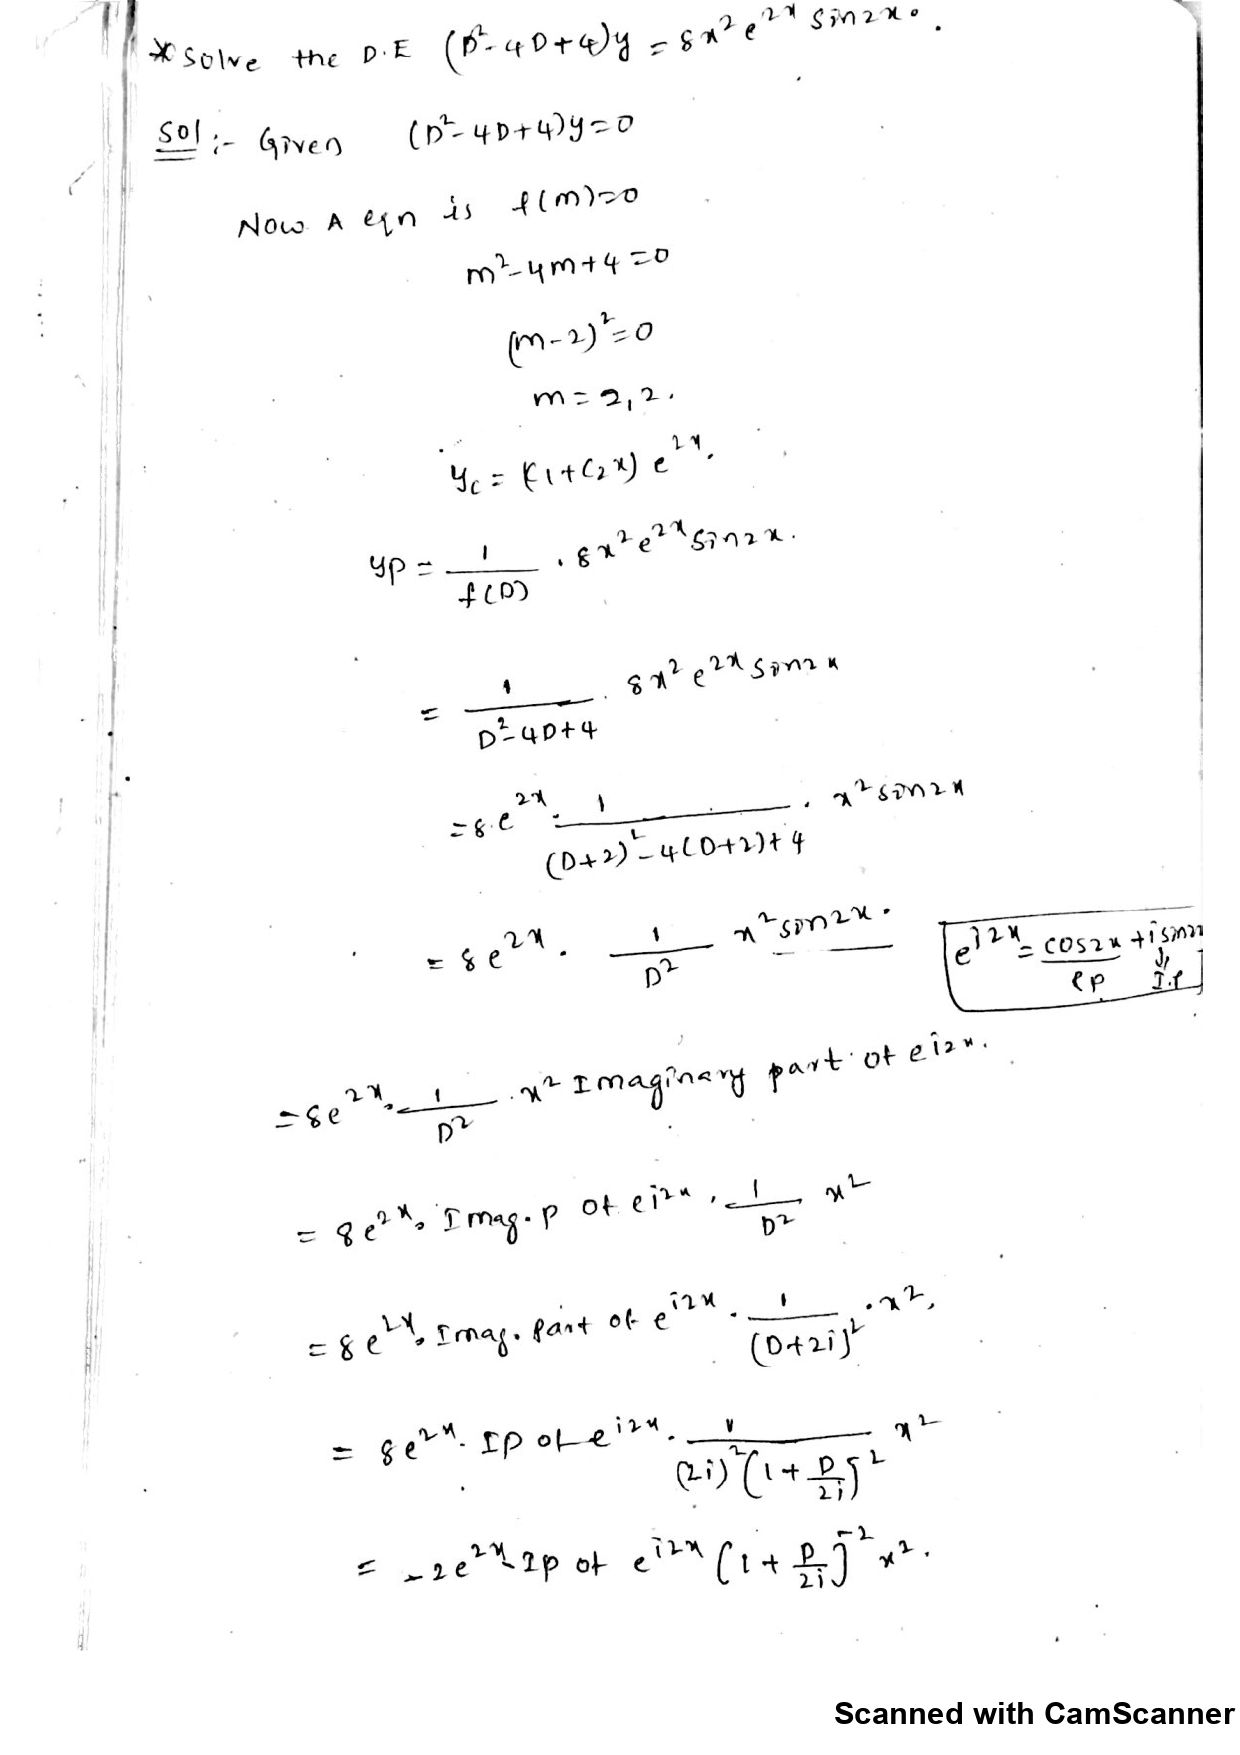 * Solve the D.E (D²-4D+4)y = 8x² e^2x sin2x.
Sol :- Given (D²-4D+4)y=0
Now A eqn is f(m)=0
m²-4m+4=0
(m-2)²=0
m=2,2.
yc = (C1+C2x) e^2x.
yp = 1/f(D) . 8x² e^2x sin2x.
= 1/(D²-4D+4) . 8x² e^2x sin2x
=8.e^2x . 1/((D+2)²-4(D+2)+4) . x² sin2x
= 8e^2x . 1/D² x² sin2x.
e^i2x = cos2x + i sin2x
RP I.P
=8e^2x . 1/D² . x² Imaginary part of ei2x.
= 8e^2x. Imag.p of ei2x . 1/D² x²
=8e^2x. Imag. Part of e^i2x . 1/(D+2i)² . x².
= 8e^2x. IP of e^i2x . 1/((2i)²(1+D/2i)²) x²
= -2e^2x IP of e^i2x (1+D/2i)^-2 x².
Scanned with CamScanner